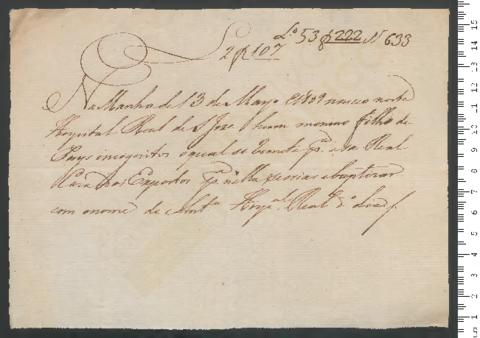 Lº 53 f 222 Nº 633
L 2 f 107
Na Manha de 13 de Mayo de 1809 nasceo neste
Hospital Real de S. Joze hum menino filho de
Pays incognitos o qual se remete pª a Real
Caza dos Expostos pª nella se criar e bauptizar
com o nome de Antº Hospal Real dº